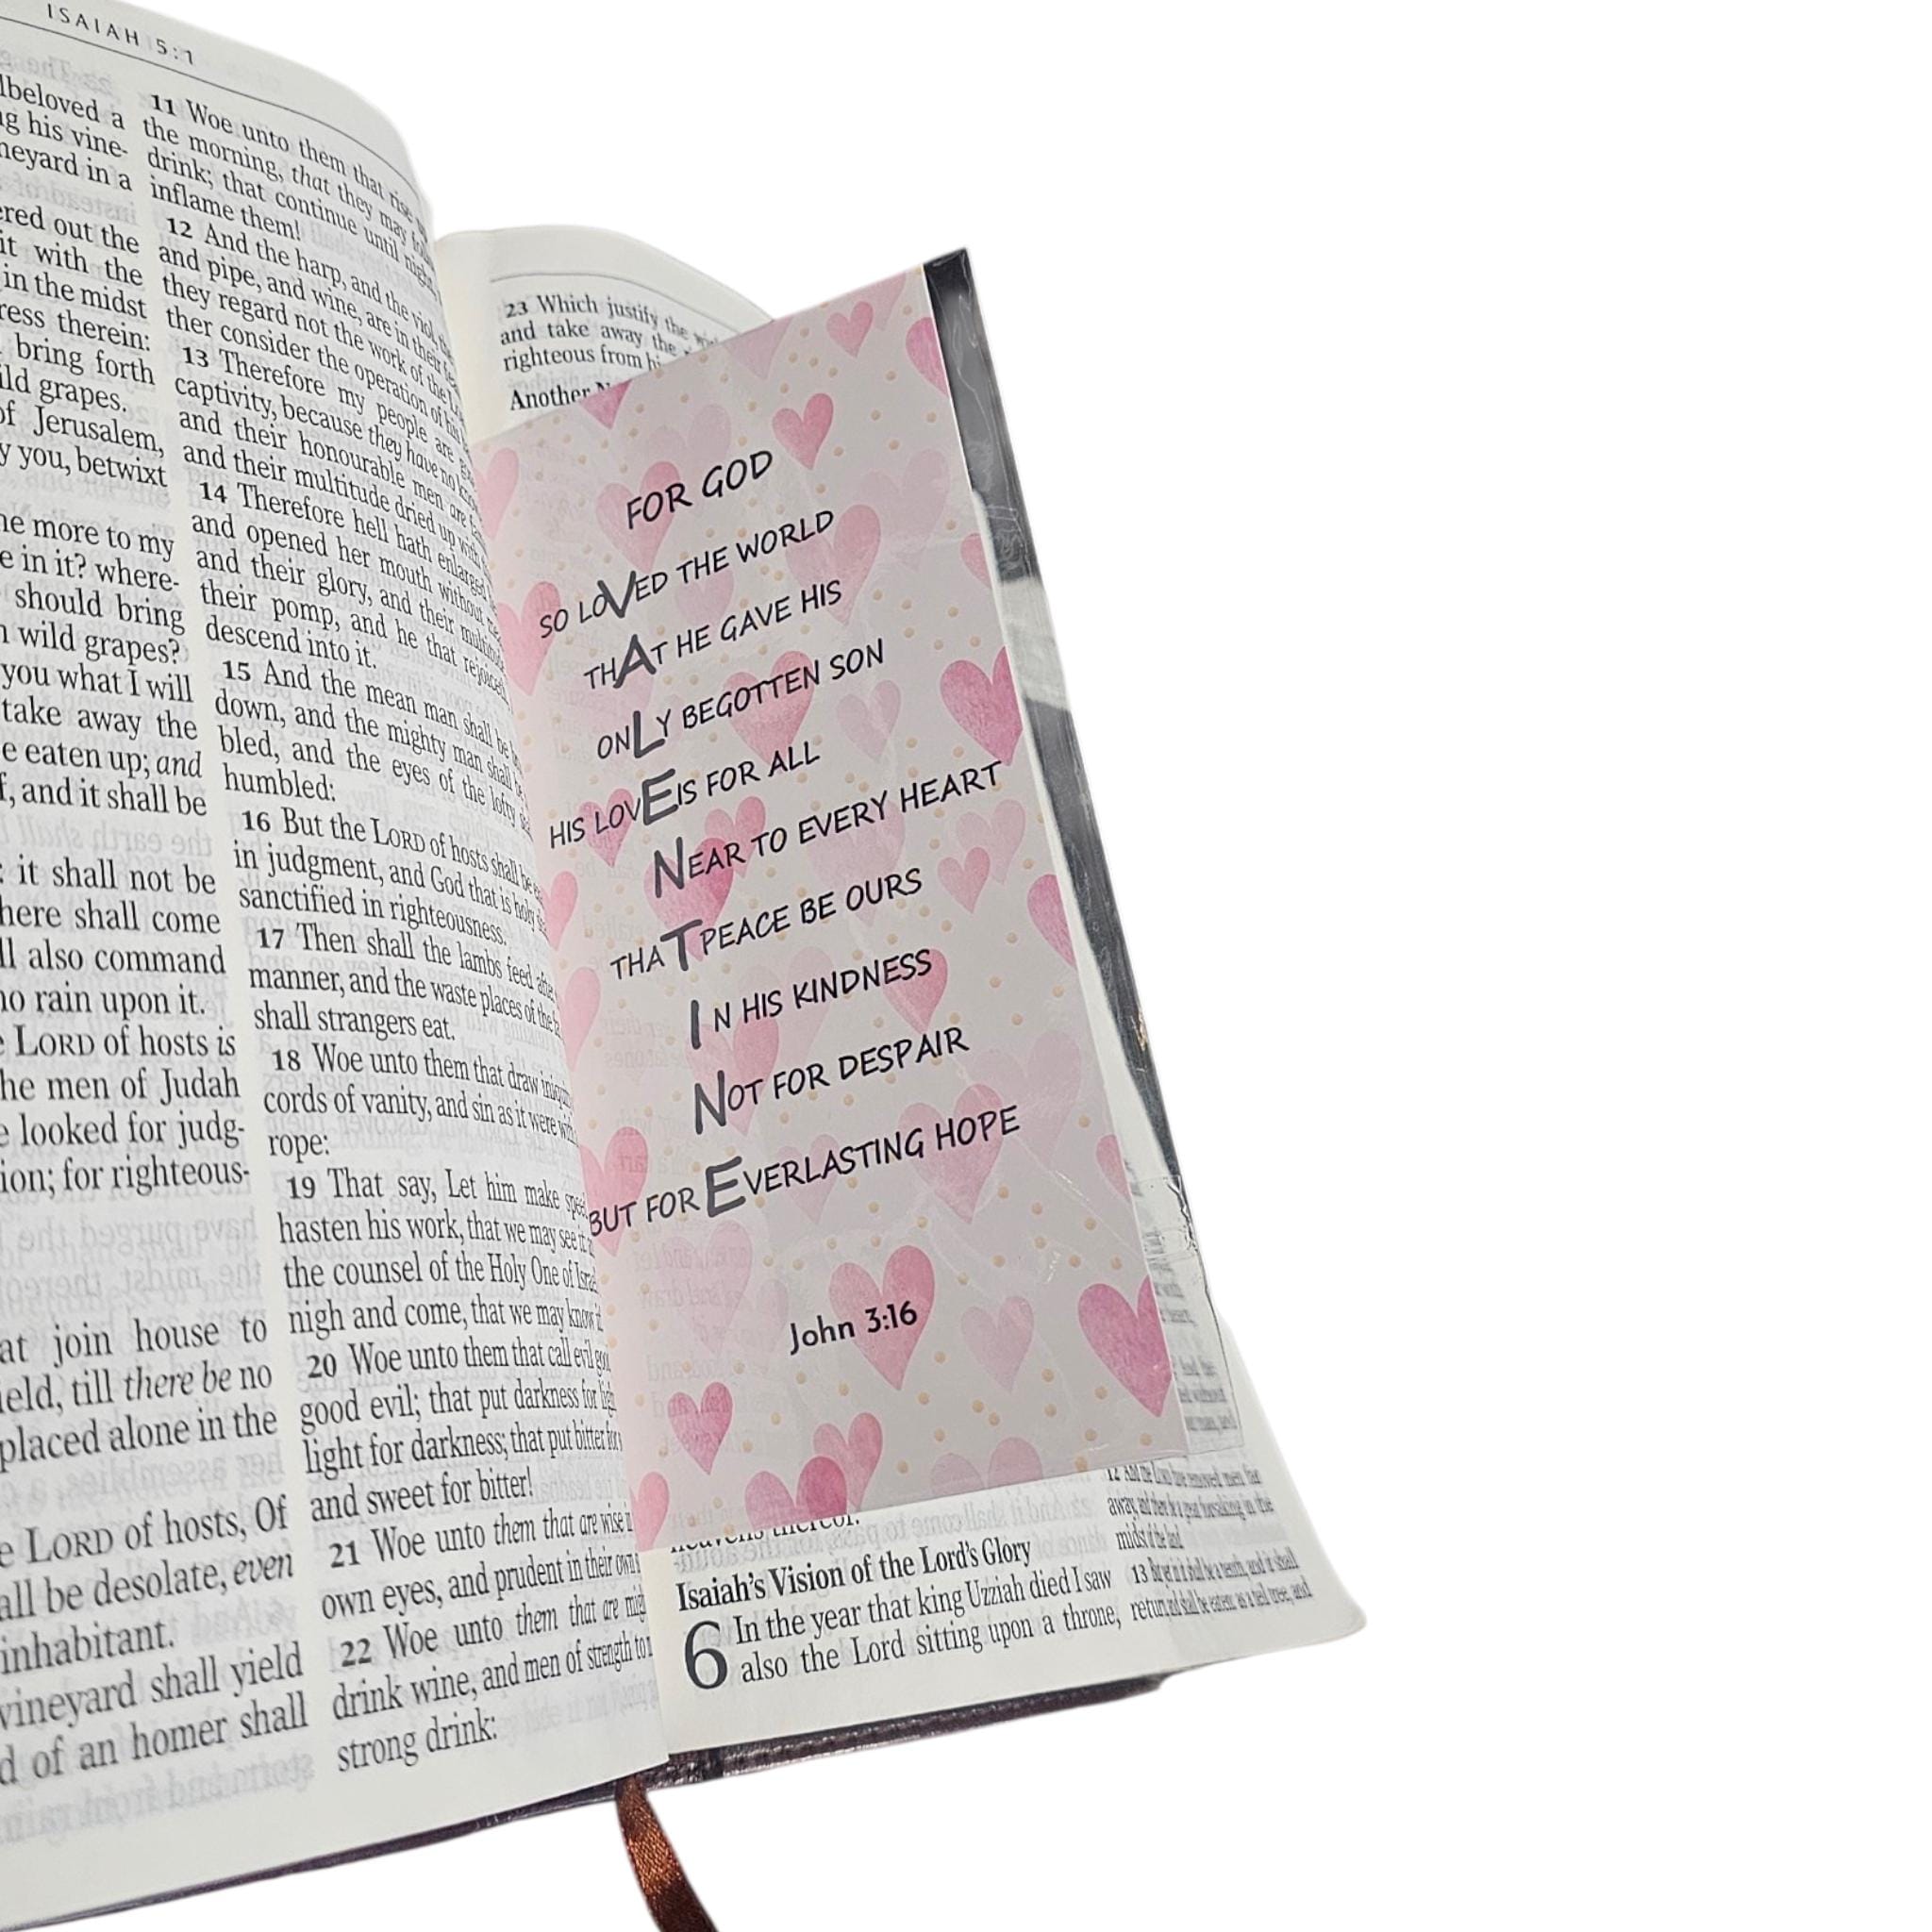 ISAIAH 5:1
lbeloved a
his vine-
neyard in a
out the
it with the
in the midst
therein:
bring forth
grapes.
of Jerusalem,
you, betwixt
more to my
in it? where-
should bring
wild grapes?
you what I will
take away the
eaten up; and
and it shall be
it shall not be
shall come
also command
no rain upon it.
LORD of hosts is
men of Judah
looked for judg-
for righteous-
join house to
till there be no
placed alone in the
LORD of hosts, Of
be desolate, even
inhabitant.
vineyard shall yield
of an homer shall
11 Woe unto them that rise
the morning, that they may
drink; that continue until night,
inflame them!
12 And the harp, and the viol,
and pipe, and wine, are in their
they regard not the work of the
ther consider the operation of his
13 Therefore my people are
captivity, because they have no
and their honourable men are
and their multitude dried up with
14 Therefore hell hath enlarged
and opened her mouth without
and their glory, and their
their pomp, and he that rejoiceth,
descend into it.
15 And the mean man shall be
down, and the mighty man shall
bled, and the eyes of the lofty
humbled:
16 But the LORD of hosts shall be
in judgment, and God that is holy
sanctified in righteousness.
17 Then shall the lambs feed after
manner, and the waste places of the
shall strangers eat.
18 Woe unto them that draw
cords of vanity, and sin as it were with
rope:
19 That say, Let him make
hasten his work, that we may see it
the counsel of the Holy One of
nigh and come, that we may know it
20 Woe unto them that call evil
good evil; that put darkness for
light for darkness; that put bitter for
and sweet for bitter!
21 Woe unto them that are wise
own eyes, and prudent in their own
22 Woe unto them that are
drink wine, and men of strength to
strong drink:
23 Which justify the
and take away the
righteous from
Another
FOR GOD
SO LOVED THE WORLD
THAT HE GAVE HIS
ONLY BEGOTTEN SON
HIS LOVE IS FOR ALL
NEAR TO EVERY HEART
THAT PEACE BE OURS
IN HIS KINDNESS
NOT FOR DESPAIR
BUT FOR EVERLASTING HOPE
John 3:16
Isaiah's Vision of the Lord's Glory
6 In the year that king Uzziah died I saw
also the Lord sitting upon a throne,
midst of the land